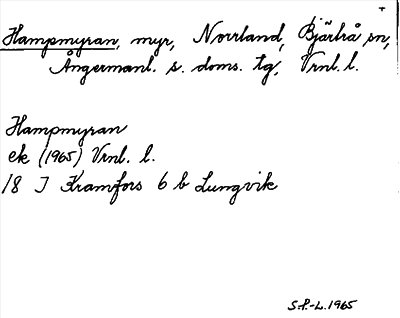 Hampmyran, myr, Norrland, Bjärtrå sn,
Ångermanl. s. doms. tg, Vrnl. l.
Hampmyran
ek (1965) Vrnl. l.
18 J Kramfors 6 b Lungvik
S.P.-L. 1965